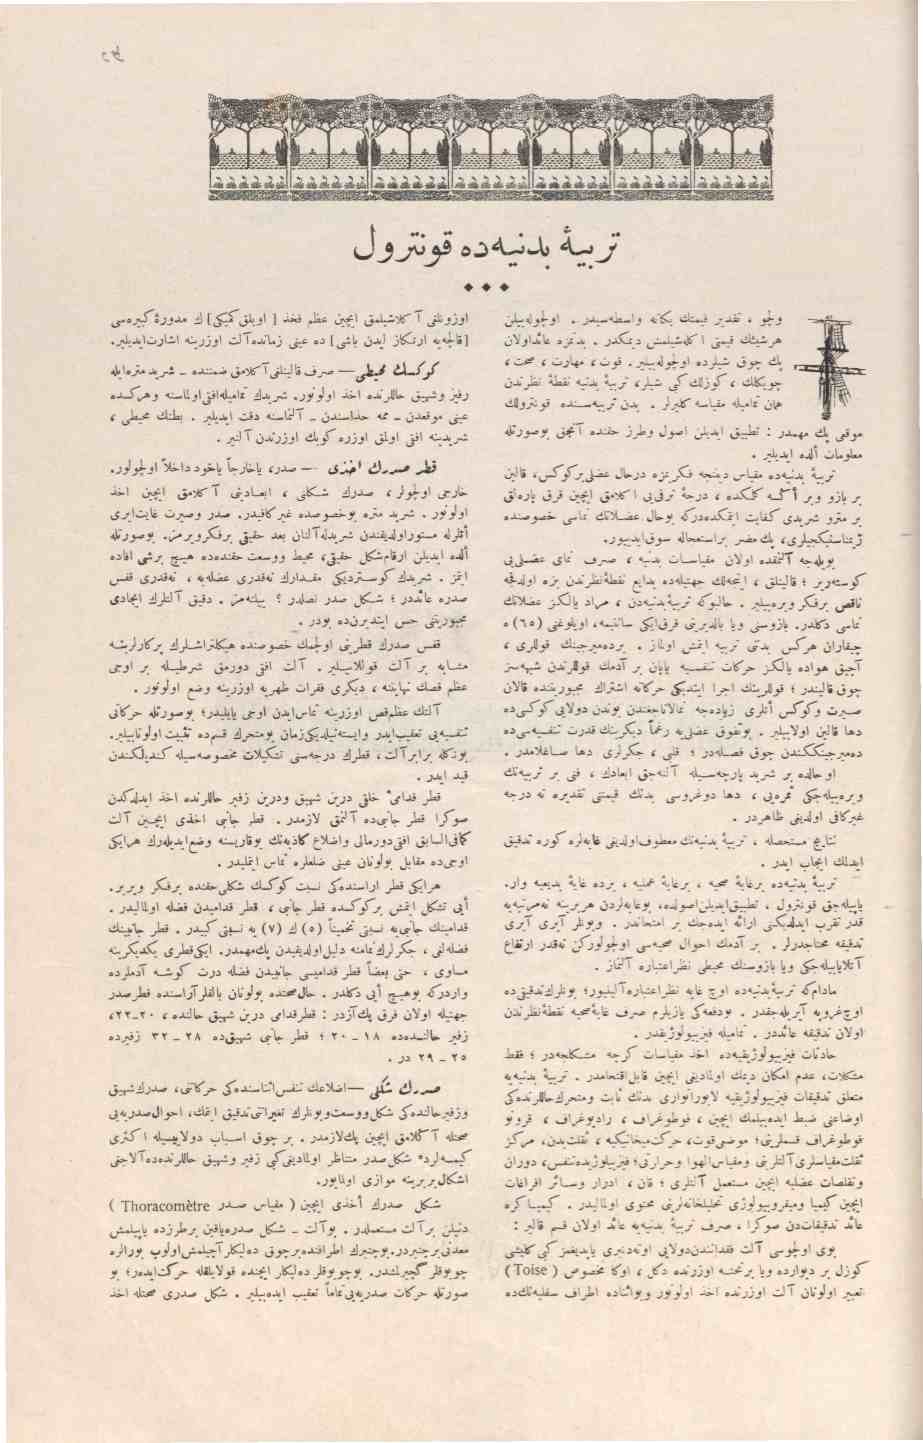 تربیهٔ بدنیه‌ده قونترول
ولچو ، تقدیر قیمتك یكانه واسطه‌سیدر . اولچوله‌بیلن
هرشیئك قیمتی آ كلاشیلمش دیمكدر . بدنمزه عائداولان
پك چوق شیلرده اولچوله‌بیلیر . قوت ، مهارت ، صحت ،
چویكلك ، كوزللك كبی شیلر ، تربیهٔ بدنیه نقطهٔ نظرندن
همان تمامیله مقیاسه كلیرلر . بدن تربیه‌سنده قونترولك
موقعی پك مهمدر : تطبیق ایدیلن اصول وطرز حقنده آنجق بوصورتله
معلومات ألده ایدیلیر .
تربیهٔ بدنیه‌ده مقیاس دینجه فكرمزه درحال عضلی‌بركوكس ، قالین
بر بازو وبر أكسه كلمكده ، درجهٔ ترقی‌یی آكلامق ایچین قرق پاره‌لق
بر مترو شریدی كفایت ایتمكده‌دركه بوحال عضلاتك تماسی خصوصنده
ژیمناستیكجیلری ، پك مضر براستعجاله سوق‌ایدییور .
بویله‌جه آلنمقده اولان مقیاسات بدنیه ، صرف نمای عضلی‌یی
كوستریر ؛ قالینلق ، انتحه‌لك جهتیله‌ده بدایع نقطهٔ‌نظرندن بزه اولدقجه
ناقص برفكر ویره‌بیلیر . حالبوكه تربیهٔ‌بدنیه‌دن ، مراد یالكز عضلاتك
نماسی دكلدر . بازوسنی ویا بالدیرینی قرق‌ایكی سانتیمه ، اویلوغنی (٦٥) ه
چیقاران هركس بدنی تربیه ایتمش اولماز . برده‌میرجینك قوللری ،
آچیق هواده یالكز حركات تنفسیه یاپان بر آدمك قوللرندن شبهه‌سز
چوق قالیندر ؛ قوللرینك اجرا ایتدیكی حركاته اشتراك مجبوریتنده قالان
صیرت وكوكس أتلری زیاده‌جه نمالاناجغندن بوندن دولایی كوكسی‌ده
دها قالین اولابیلیر . بوتفوق عضلی‌یه رغماً دیكرینك قدرت تنفسیه‌سی‌ده
ده‌میرجینككندن چوق فضله‌در ؛ قلبی ، جكرلری دها صاغلامدر .
او حالده بر شرید پارچه‌سیله آلنه‌جق ابعادك ، فنی بر تربیه‌نك
ویره‌بیله‌جكی ثمره‌یی ، دها دوغروسی بدنك قیمتنی تقدیره نه درجه
غیركافی اولدیغی ظاهردر .
نتایج مستحصله ، تربیهٔ بدنیه‌نك معطوف‌اولدیغی غایه‌لره كوره تدقیق
ایدلك ایجاب ایدر .
تربیهٔ بدنیه‌ده برغایهٔ صحیه ، برغایهٔ عملیه ، برده غایهٔ بدیعیه وار .
یاپیله‌جق قونترول ، تطبیق‌ایدیلن‌اصولده ، بوغایه‌لردن هربرینه نه‌مرتبه‌یه
قدر تقرب ایدلدیكنی ارائه ایده‌جك بر امتحاندر . وبونلر آیری آیری
تدقیقه محتاجدرلر . بر آدمك احوال صحیه‌سی اولچولوركن نه‌قدر ارتفاع
آتلایابیله‌جكی ویا بازوسنك محیطی نظراعتباره آلنماز .
مادام‌كه تربیهٔ‌بدنیه‌ده اوچ غایه نظراعتباره‌آلینیور ؛ بونلرك‌تدقیقی‌ده
اوچ‌غروپه آیریله‌جقدر . بودفعه‌كی یازیلرم صرف غایهٔ‌صحیه نقطهٔ‌نظرندن
اولان تدقیقه عائددر . تمامیله فیزییولوژیقدر .
حادثات فیزییولوژیقیه‌ده اخذ مقیاسات كرچه مشكلجه‌در ؛ فقط
مشكلات ، عدم امكان دیمك اولمادیغی ایچین قابل‌اقتحامدر . تربیهٔ بدنیه‌یه
متعلق تدقیقات فیزییولوژیقیه لابوراتواری بدنك ثابت ومتحرك‌حاللرنده‌كی
اوضاعنی ضبط ایده‌بیلمك ایچین ، فوطوغراف ، رادیوغراف ، قرونو
فوطوغراف قسملرینی ؛ موضعی‌قوت ، حركت‌میخانیكیه ، ثقلت‌بدن ، مركز
ثقلت‌مقیاسلری‌آلتلرینی ومقیاس‌الهوا وحرارتی ؛ فیزییولوژیده‌تنفس ، دوران
وتقلصات عضلیه ایچین مستعمل آلتلری ؛ قان ، ادرار وسائر افراغات
ایچین كیمیا ومیقروبیولوژی تحلیلخانه‌لرینی محتوی اولمالیدر . كیمیاكره
عائد تدقیقات‌دن صوكرا ، صرف تربیهٔ بدنیه‌یه عائد اولان قسم قالیر :
بوی اولچوسی آلت فقدانندن‌دولایی اوته‌دنبری یاپدیغمز كبی كلیشی
كوزل بر دیوارده ویا برتخته اوزرنده دكل ، اوكا مخصوص ( Toise )
تعبیر اولونان آلت اوزرنده اخذ اولونور وبواثناده اطراف سفلیه‌نك‌ده
اوزونلغی آ كلاشیلمق ایچین عظم فخذ [ اویلق كمیكی ] ك مدورهٔ كبیره‌سی
[قالچه‌یه ارتكاز ایدن باشی] ده عینی زمانده‌آلت اوزرینه اشارت‌ایدیلیر.
كوكسك محیطی — صرف قالینلغی‌آكلامق ضمننده _ شرید متره‌ایله
زفیر وشهیق حاللرنده اخذ اولونور. شریدك تمامیله‌افقی‌اولماسنه وهركسده
عینی موقعدن _ ممه حذاسندن _ آلنماسنه دقت ایدیلیر . بطنك محیطی ،
شریدینه افقی اولمق اوزره كوبك اوزرندن آلنیر .
قطر صدرك اخذی — صدر ، یاخارجاً یاخود داخلاً اولچولور.
خارجی اولچولر ، صدرك شكلنی ، ابعادینی آ كلامق ایچین اخذ
اولونور . شرید متره بوخصوصده غیر كافیدر. صدر وصیرت غایت‌ایری
أتلرله مستوراولدیغندن شریدله‌آلنان بعد حقیقی برفكرویرمز. بوصورتله
ألده ایدیلن ارقام‌شكل حقیقی ، محیط ووسعت حقنده‌ده هیچ برشی افاده
ایتمز . شریدك كوستردیكی مقدارك نه‌قدری عضله‌یه ، نه‌قدری قفس
صدره عائددر ؛ شكل صدر نصلدر ؟ بیلنه‌مز . دقیق آلتلرك ایجادی
مجبوریتنی حس ایتدیرن‌ده بودر .
قفس صدرك قطرینی اولچمك خصوصنده هیكلتراشلرك پركارلرینه
مشابه بر آلت قوللانیلیر . آلت افقی دورمق شرطیله بر اوجی
عظم قصك نهایتنه ، دیكری فقرات ظهریه اوزرینه وضع اولونور .
آلتك عظم‌قص اوزرینه تماس‌ایدن اوجی یایلیدر ؛ بوصورتله حركاتی
تنفسیه‌یی تعقیب‌ایدر وایسته‌نیلدیكی‌زمان بومتحرك قسم‌ده تثبیت اولونابیلیر.
بونكله برابر آلت ، قطرك درجه‌سنی تشكیلات مخصوصه‌سیله كندیلكندن
قید ایدر .
قطر قدامی خلقی درین شهیق ودرین زفیر حاللرنده اخذ ایدلدكدن
صوكرا قطر جانبی‌ده آلنمق لازمدر . قطر جانبی اخذی ایچین آلت
كمافی‌السابق افقی‌دورمالی واضلاع كاذبه‌نك یوقاریسنه وضع‌ایدیله‌رك هرایكی
اوجی‌ده مقابل بولونان عینی ضلعلره تماس ایتملیدر .
هرایكی قطر اراسنده‌كی نسبت كوكسك شكلی‌حقنده برفكر ویریر.
أیی تشكل ایتمش بركوكسده قطر جانبی ، قطر قدامیدن فضله اولمالیدر .
قدامینك جانبی‌یه نسبتی تخمیناً (٥) ك (٧) یه نسبتی كبیدر . قطر جانبینك
فضله‌لغی ، جكرلرك‌نمامنه دلیل‌اولدیغندن پك‌مهمدر. ایكی‌قطری یكدیكرینه
مساوی ، حتی بعضاً قطر قدامیسی جانبیدن فضله درت كوشه آدملرده
واردركه بوهیچ أیی دكلدر . حال‌صحتده بولونان بالغلرآراسنده قطرصدر
جهتیله اولان فرق پك‌آزدر : قطرقدامی درین شهیق حالنده ، ٢٠_٢٢ ،
زفیر حالنده‌ده ١٨ _ ٢٠ ؛ قطر جانبی شهیق‌ده ٢٨ _ ٣٢ زفیرده
٢٥ _ ٢٩ در .
صدرك شكلی —اضلاعك تنفس‌اثناسنده‌كی حركاتی ، صدرك‌شهیق
وزفیرحالنده‌كی شكل‌ووسعت‌وبونلرك تغیراتنی‌تدقیق ایتمك ، احوال‌صدریه‌یی
صحتله آ كلامق ایچین پك‌لازمدر . بر چوق اسباب دولاییسیله اكثری
كیمسه‌لرده شكل‌صدر متناظر اولمادیغی‌كبی زفیر وشهیق حاللرنده‌ده‌آلاجغی
اشكال‌بربرینه موازی اولمایور.
شكل صدرك أخذی ایچین ( مقیاس صدر Thoracomètre )
دنیلن برآلت مستعملدر . بوآلت _ شكل صدره‌یاقین برطرزده یاپیلمش
معدنی‌برچنبردر.بوچنبرك اطرافنده‌برچوق ده‌لیكلر آچیلمش‌اولوپ بورالره
چوبوقلر كچیرلمشدر. بوچوبوقلر ده‌لیكلر ایچنده قولایلقله حركت‌ایدر ؛ بو
صورتله حركات صدریه‌یی‌تماماً تعقیب ایده‌بیلیر . شكل صدری صحتله اخذ